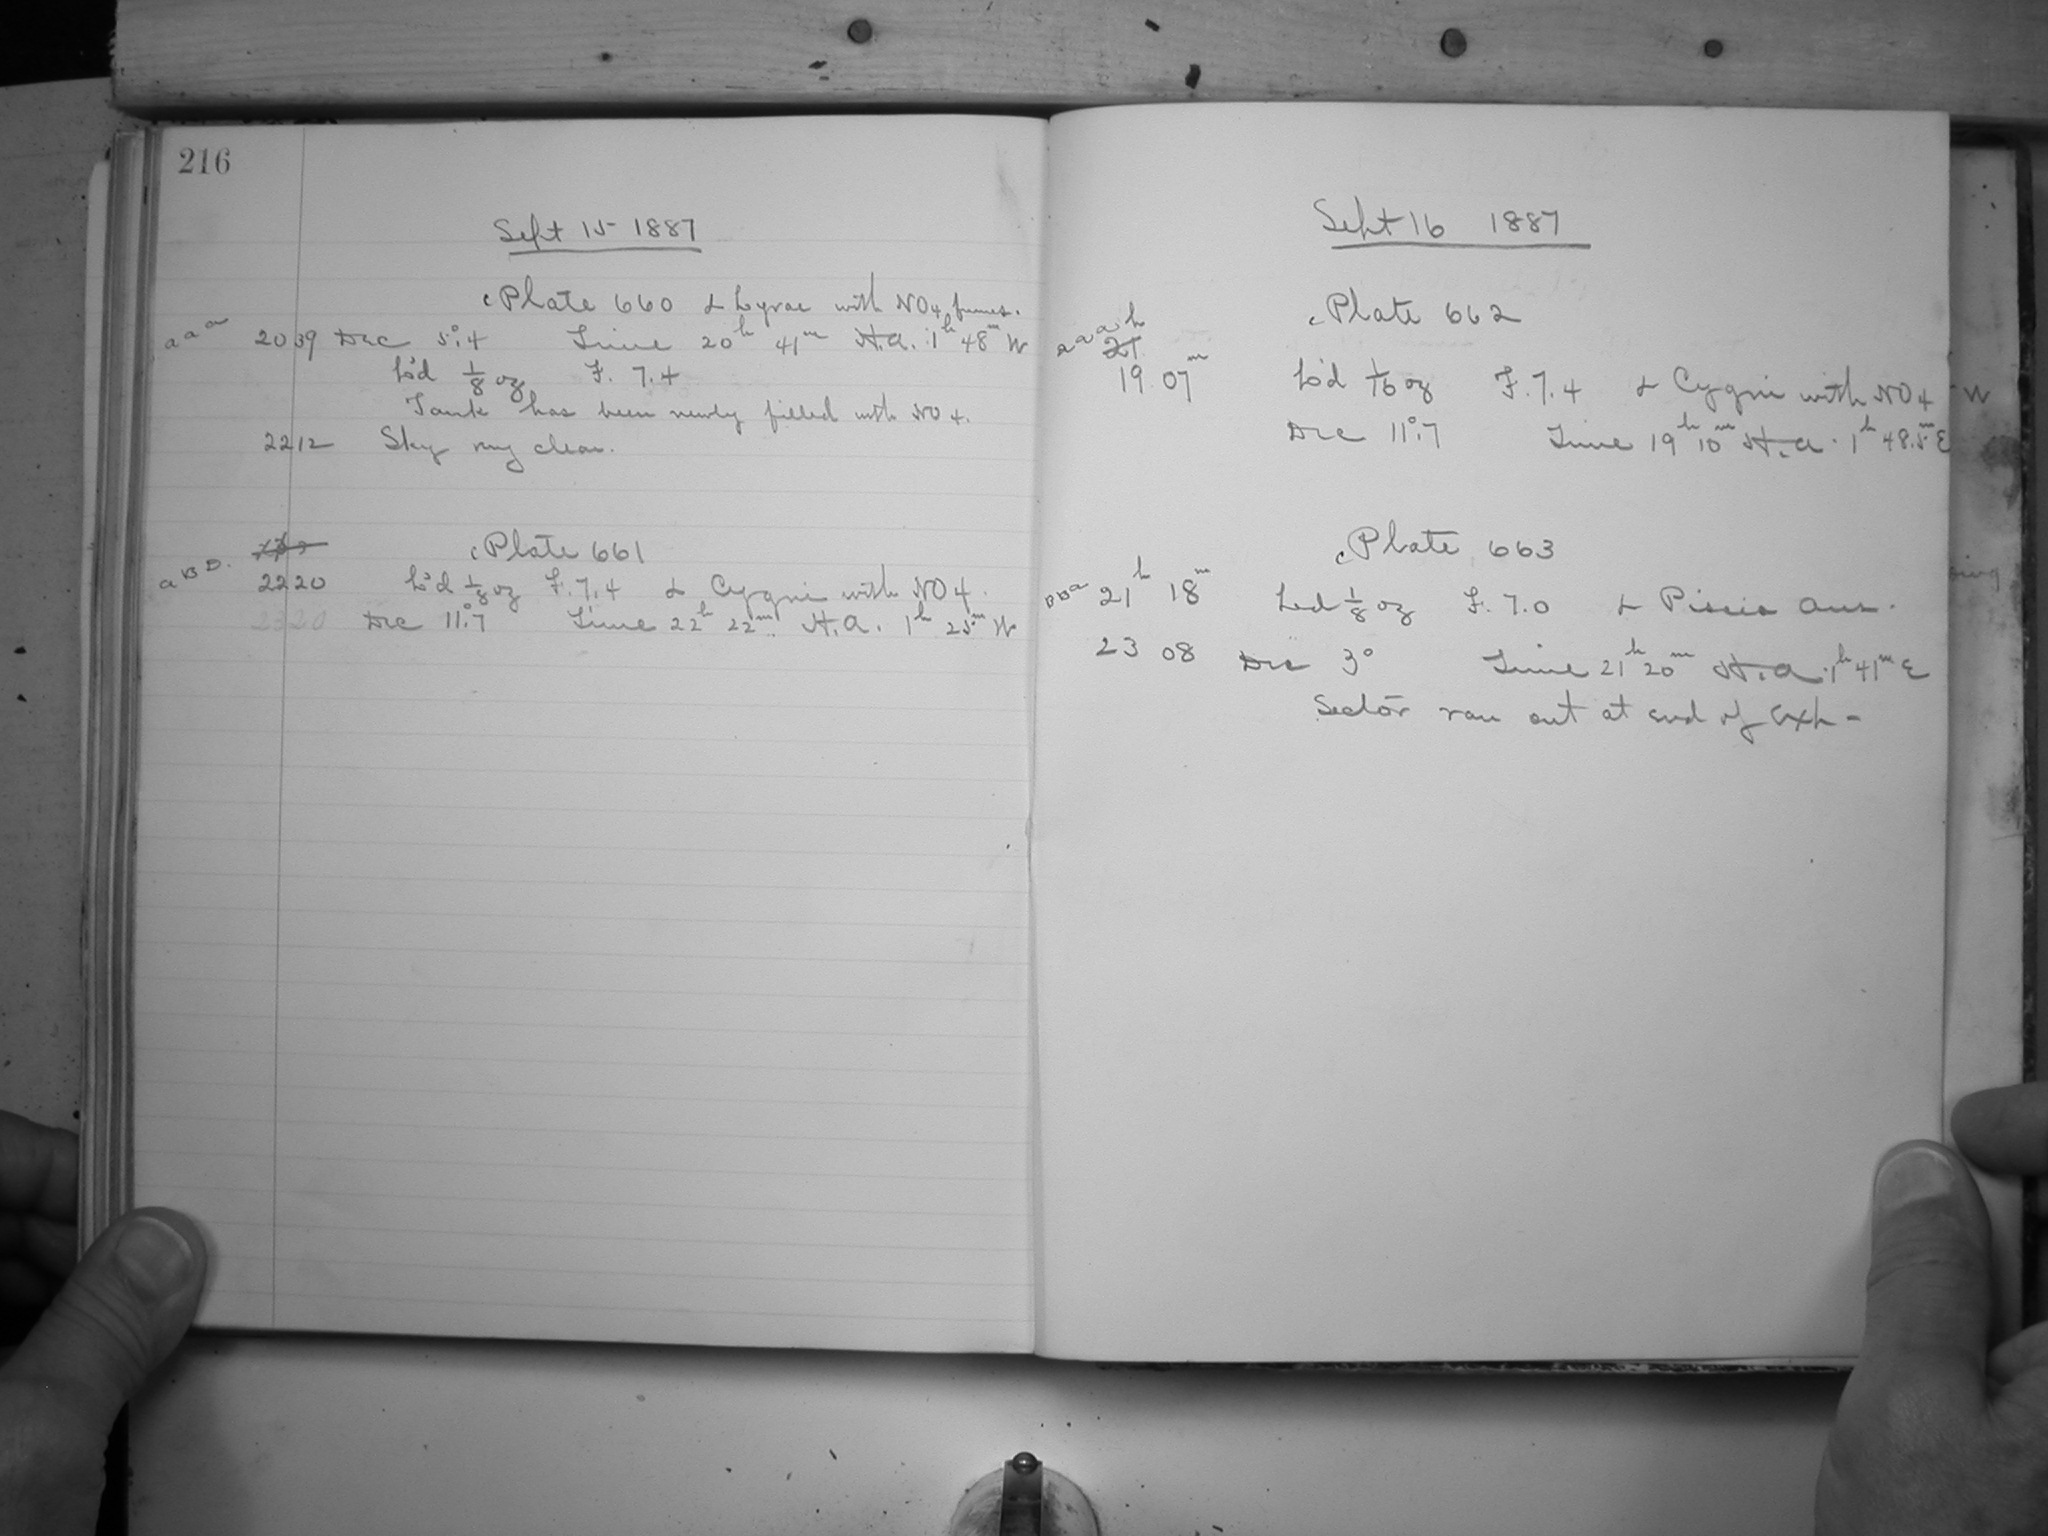 216
Sept 15 1887
Plate 660 α Lyrae with NO4 fumes.
a a a 20 39 Dec 5°.4 Time 20h 41m H.A. 1h 48m W
L'd 1/8 oz F. 7.4
Tank has been newly filled with NO4.
22 12 Sky very clear.
Plate 661
a B D. 22 20 L'd 1/8 oz F. 7.4 α Cygni with NO4.
23 20 Dec 11°.7 Time 22h 22m H.A. 1h 25m W
Sept 16 1887
Plate 662
a a a h
21
19 07m L'd 1/16 oz F. 7.4 α Cygni with NO4 W
Dec 11°.7 Time 19h 10m H.A. 1h 48.5m E
Plate 663
B B a 21h 18m L'd 1/8 oz F. 7.0 α Piscis Aus.
23 08 Dec 3° Time 21h 20m H.A. 1h 41m E
Sector ran out at end of exp-